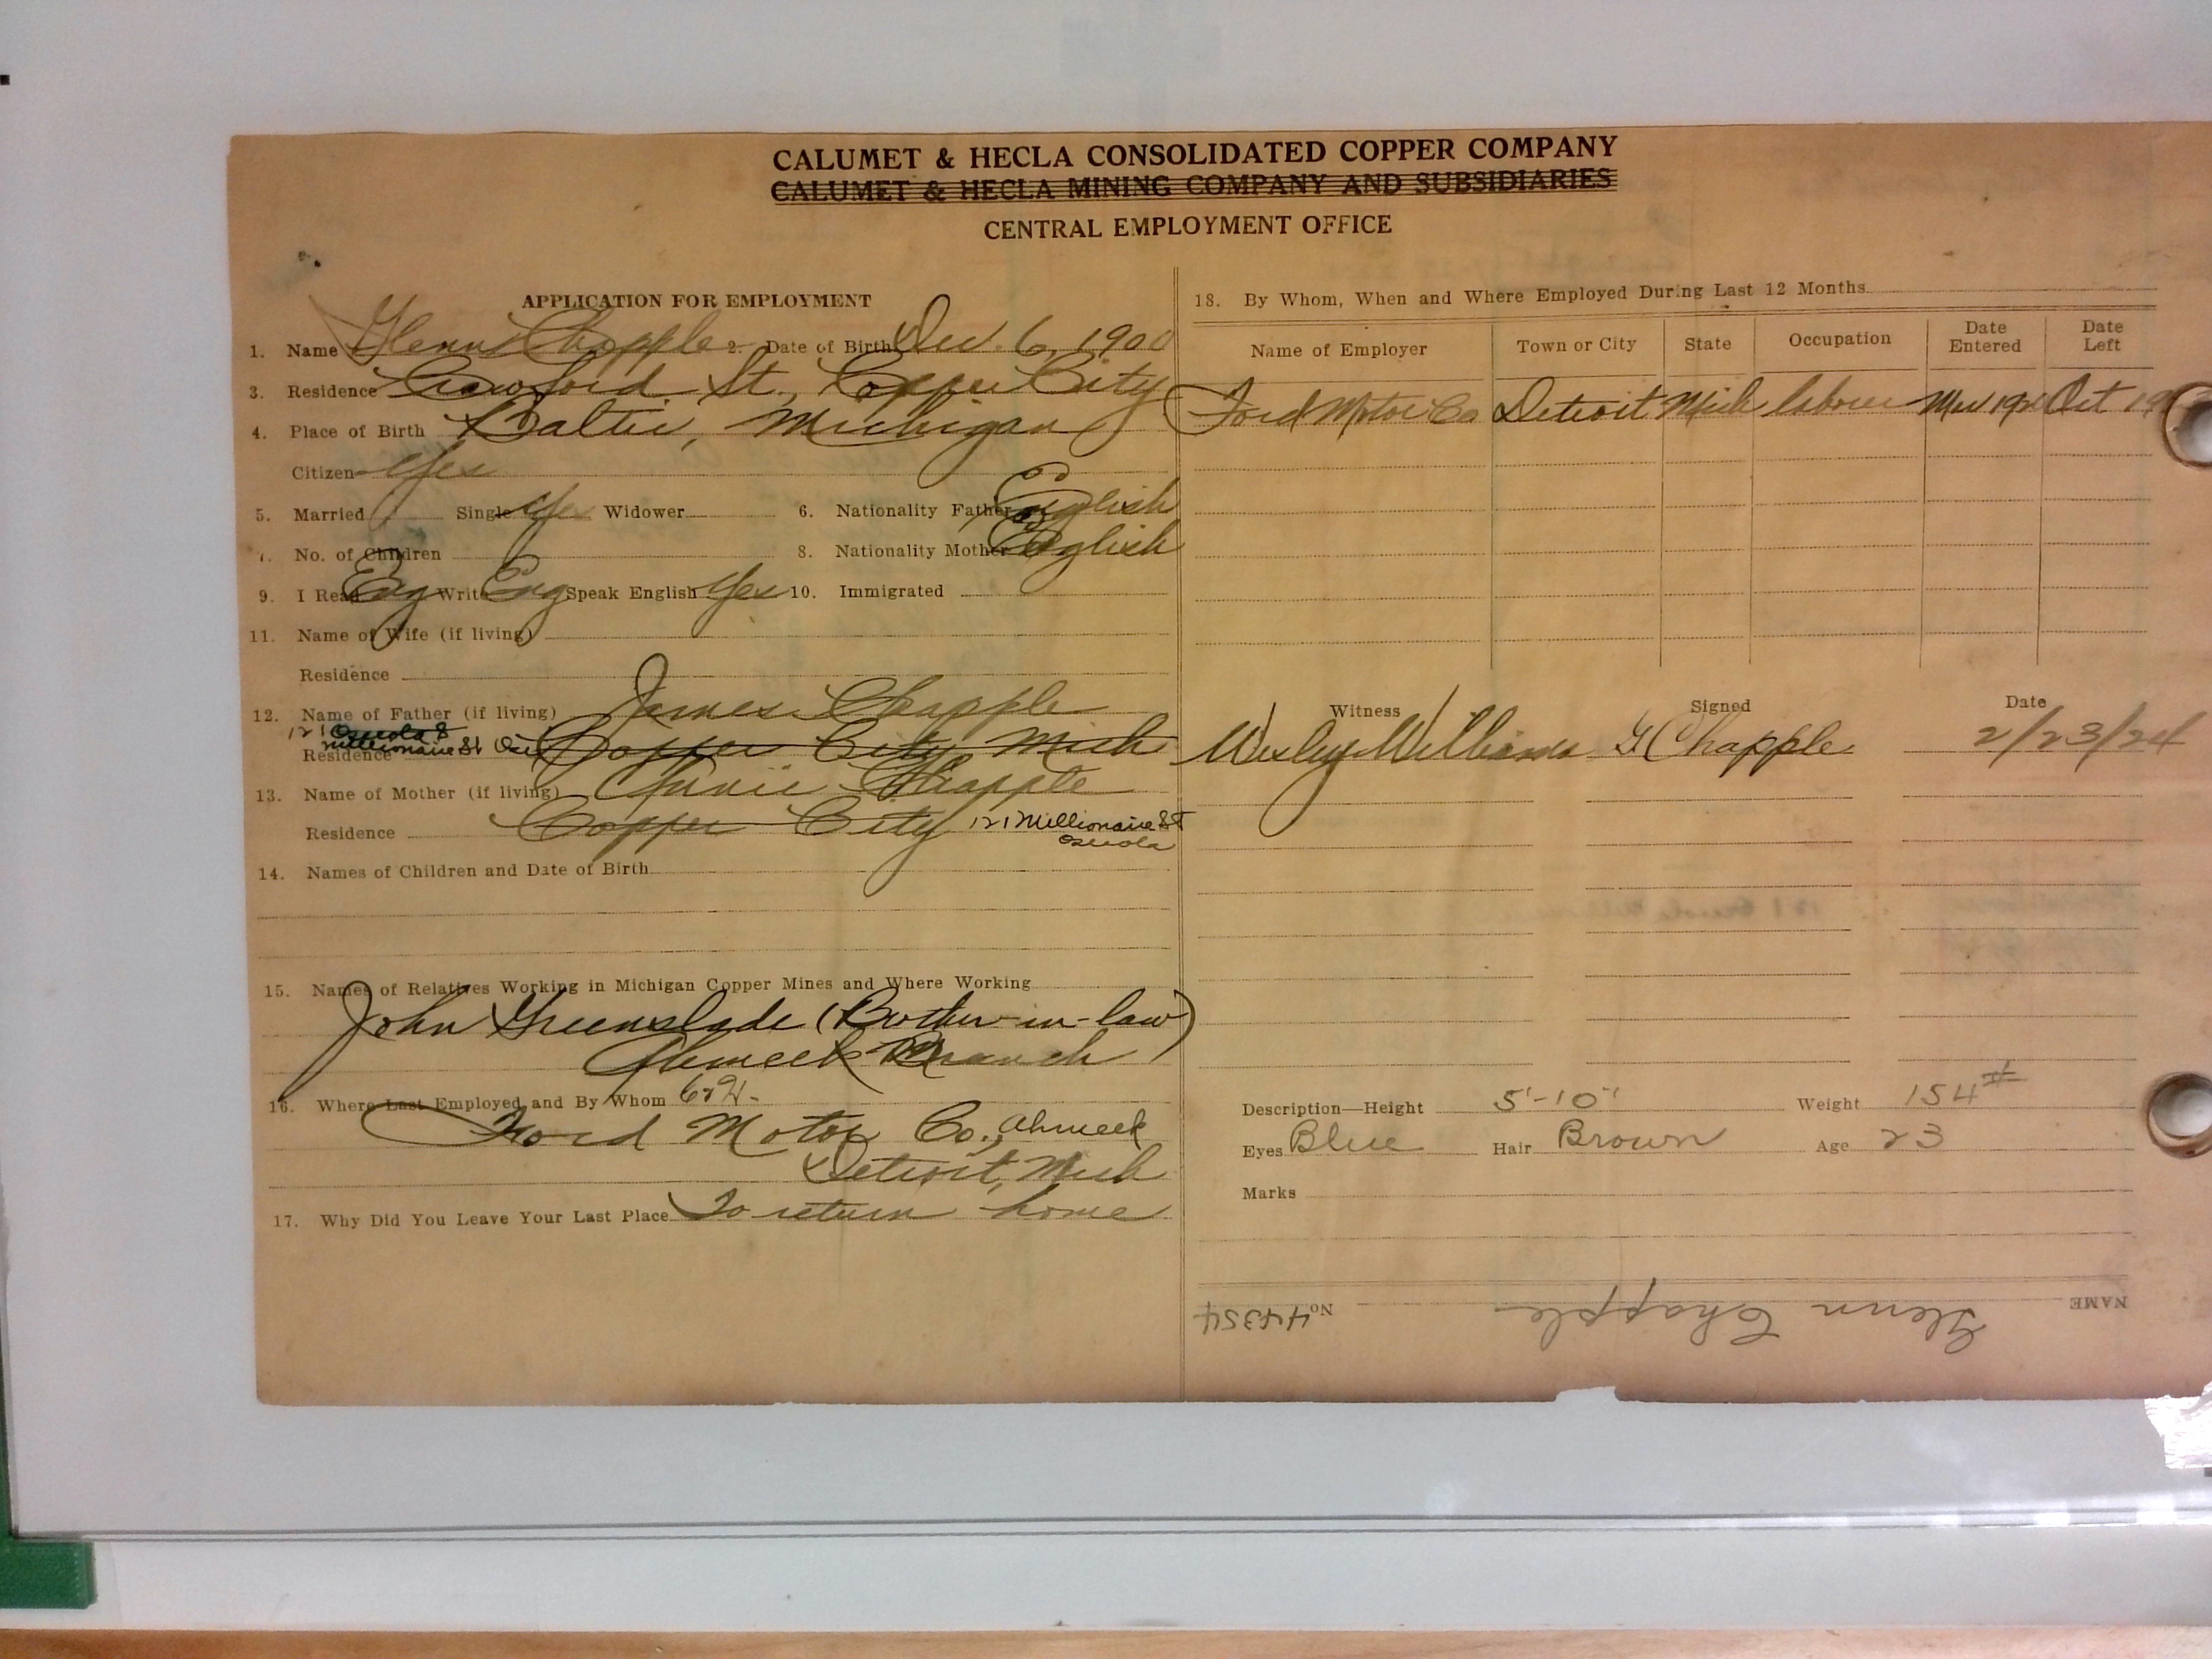 CALUMET & HECLA CONSOLIDATED COPPER COMPANY
CALUMET & HECLA MINING COMPANY AND SUBSIDIARIES
CENTRAL EMPLOYMENT OFFICE
APPLICATION FOR EMPLOYMENT
1. Name Glenn Chapple 2. Date of Birth Dec. 6, 1900
3. Residence Crawford St., Copper City
4. Place of Birth Baltic, Michigan
Citizen Yes
5. Married Single Yes Widower 6. Nationality Father English
7. No. of Children 8. Nationality Mother English
9. I Read Eng Write Eng Speak English Yes 10. Immigrated
11. Name of Wife (if living)
Residence
12. Name of Father (if living) James Chapple
121 Osceola St
Millionaire St
Residence Copper City, Mich
13. Name of Mother (if living) Annie Chapple
Residence Copper City 121 Millionaire St
Osceola
14. Names of Children and Date of Birth
15. Names of Relatives Working in Michigan Copper Mines and Where Working
John Greenslade (Brother-in-law)
Ahmeek Branch
16. Where Last Employed and By Whom
Ford Motor Co., Ahmeek
Detroit, Mich
17. Why Did You Leave Your Last Place To return home
18. By Whom, When and Where Employed During Last 12 Months
Name of Employer Town or City State Occupation Date Entered Date Left
Ford Motor Co Detroit Mich labour Oct
Witness Signed Date
Wesley Williams G Chapple 2/23/24
Description—Height 5'-10" Weight 154#
Eyes Blue Hair Brown Age 23
Marks
NAME Glenn Chapple No. 44354